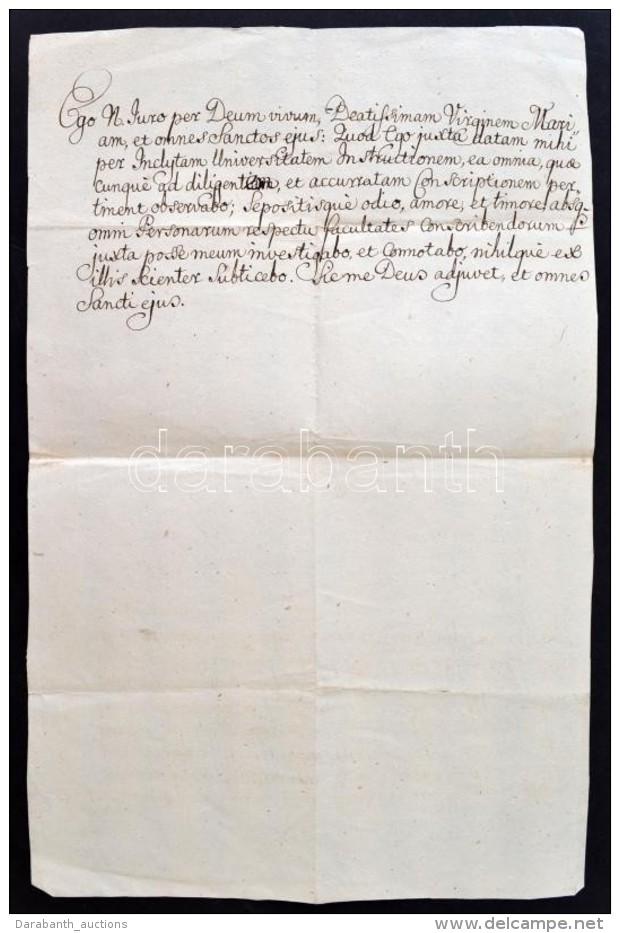 Ego N. Juro per Deum vivum, Beatissimam Virginem Mari
am, et omnes Sanctos ejus: Quod Ego juxta datam mihi
per Inclytam Universitatem Instructionem, ea omnia, quæ
cunque ad diligentem, et accurratam Conscriptionem per„
timent observabo; Sepositisque odio, amore, et timore absq
omni Personarum respectu facultates Conscribendorum
juxta posse meum investigabo, et Connotabo, nihilque ex
illis scienter Subticebo. Sic me Deus adjuvet, et omnes
Sancti ejus.
darabanth
Darabanth_auctions
delcampe.net